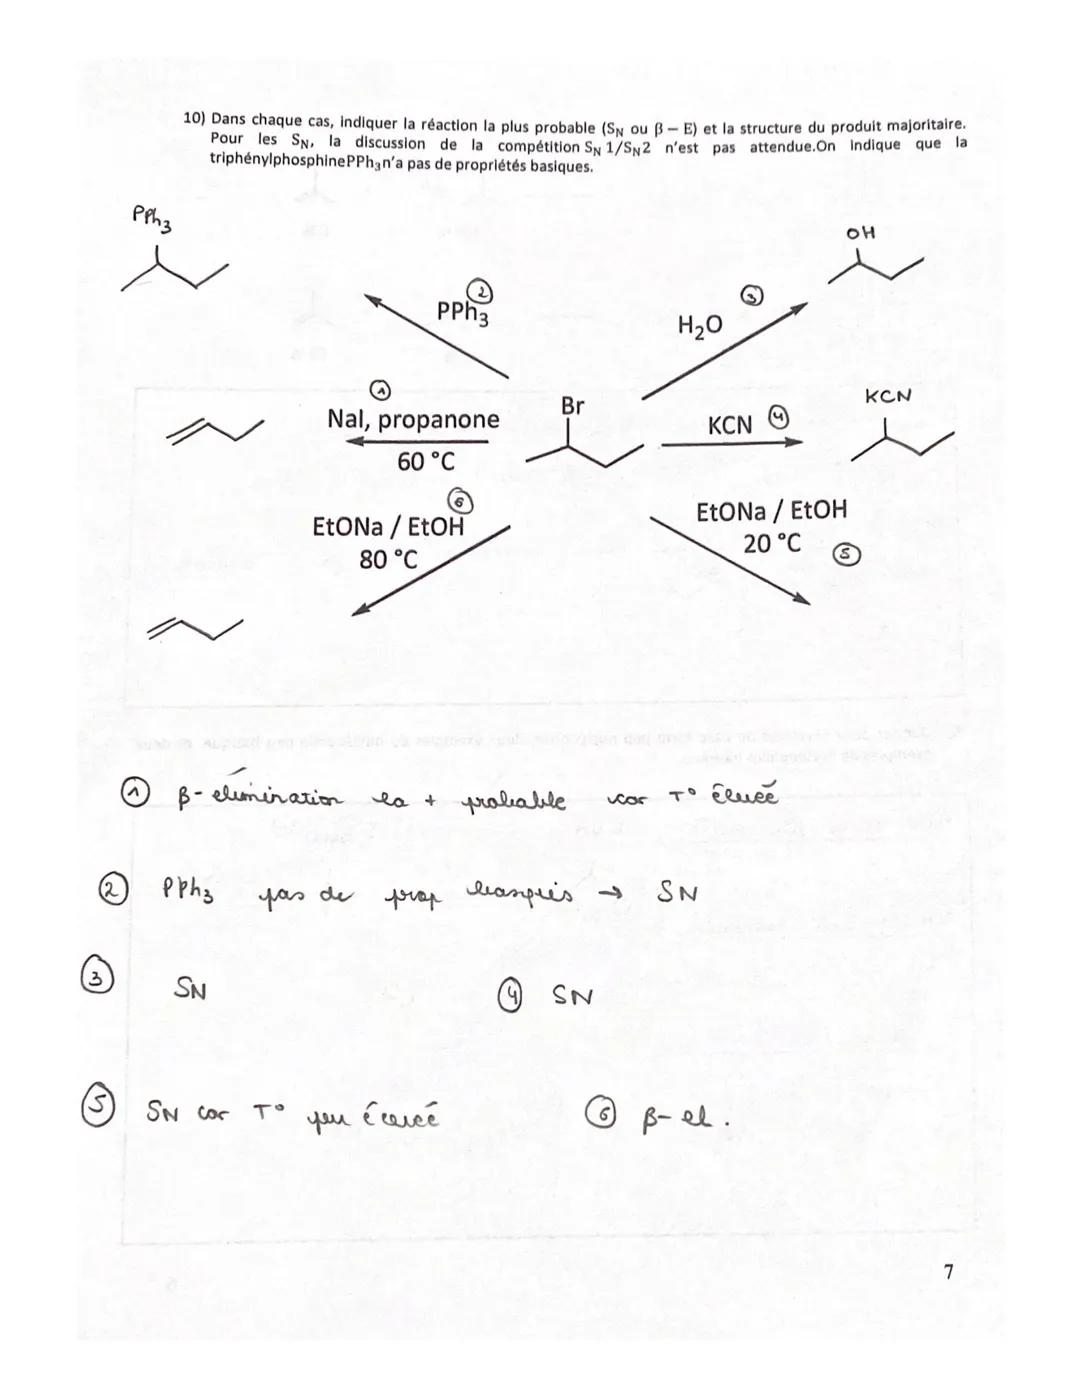 10) Dans chaque cas, indiquer la réaction la plus probable (SN ou β – E) et la structure du produit majoritaire.
Pour les SN, la discussion de la compétition SN 1/SN2 n'est pas attendue.On indique que la
triphénylphosphinePPh3n'a pas de propriétés basiques.
PPh3
OH
②
PPh3
③
H2O
①
NaI, propanone
60 °C
Br
KCN ④
KCN
⑥
EtONa / EtOH
80 °C
EtONa / EtOH
20 °C ⑤
① β- élimination la + probable car T° élevée
② PPh3 pas de prop basques → SN
③ SN
④ SN
⑤ SN car T° peu élevée
⑥ β- el.
7